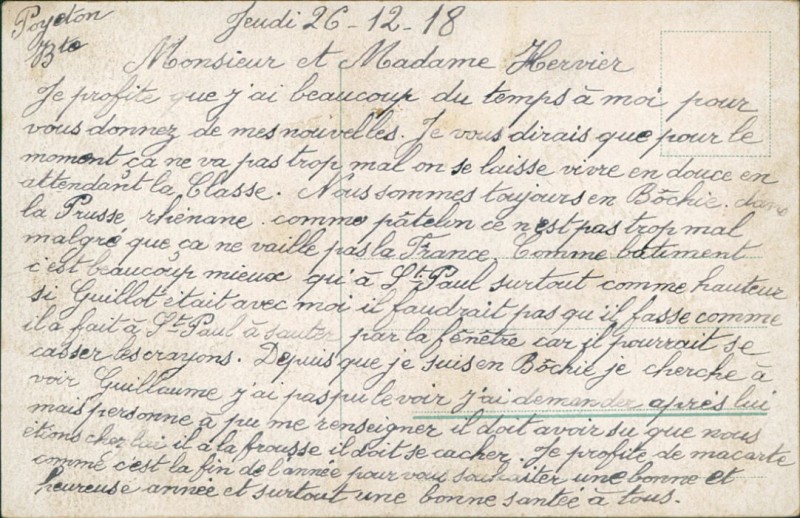 Poyeton
Bto
Jeudi 26-12-18
Monsieur et Madame Hervier
Je profite que j'ai beaucoup du temps à moi pour
vous donnez de mes nouvelles. Je vous dirais que pour le
moment ça ne va pas trop mal on se laisse vivre en douce en
attendant la Classe. Nous sommes toujours en Bôchie. dans
la Prusse rhénane comme pâtelin ce n'est pas trop mal
malgré que ça ne vaille pas la France. Comme bâtiment
c'est beaucoup mieux qu'à St Paul surtout comme hauteur
si Guillot était avec moi il faudrait pas qu'il fasse comme
il a fait à St Paul à sauter par la fênêtre car il pourrait se
casser les crayons. Depuis que je suis en Bôchie je cherche à
voir Guillaume j'ai pas pu le voir j'ai demander après lui
mais personne à pu me renseigner il doit avoir su que nous
étions chez lui il à la frousse il doit se cacher. Je profite de ma carte
comme c'est la fin de l'année pour vous souhaiter une bonne et
heureuse année et surtout une bonne santée à tous.